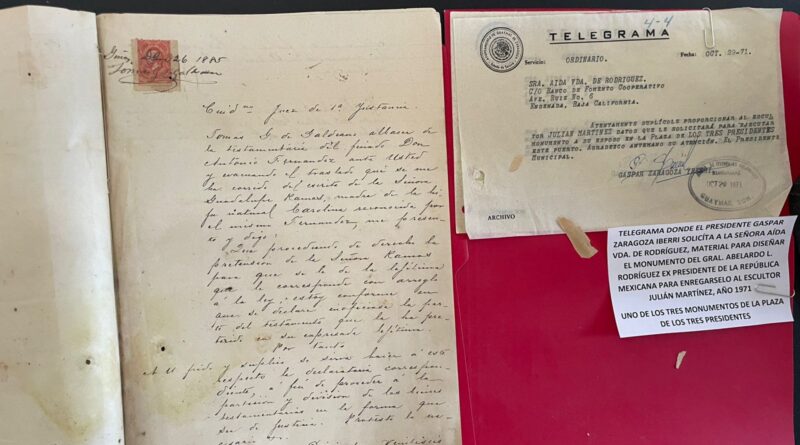 26 1885
Ciudno Juez de 1a Instancia.
Tomas G. de Galdeano albacea de
la testamentaria del finado Don
Antonio Fernandez ante Usted
y evacuando el traslado que se me
ha corrido del escrito de la Señora
Guadalupe Ramas, madre de la hi-
ja natural Carolina reconocida por
el mismo Fernandez, me presen-
to y digo:
Que procediendo de derecho la
pretension de la Señora Ramas
para que se le de la lejitima
que le corresponde con arreglo
á la ley; estoy conforme en
que se declare inoficioso
to del testamento que la ha pre-
terido en su expresada lejitima.
Por tanto
A U pido y suplico se sirva hacer á este
respecto la declaratoria correspon-
diente, á fin de proceder á la
particion y division de los bienes
testamentarios en la forma que
sea de justicia. Protesto lo ne-
cesario
4-4
TELEGRAMA
Servicio: ORDINARIO. Fecha: OCT. 29-71.
SRA. AIDA VDA. DE RODRIGUEZ.
C/O BANCO DE FOMENTO COOPERATIVO
AVE. RUIZ NO. 6
ENSENADA, BAJA CALIFORNIA.
ATENTAMENTE SUPLÍCOLE PROPORCIONAR AL ESCUL
TOR JULIAN MARTINEZ DATOS QUE LE SOLICITARÁ PARA EJECUTAR
MONUMENTO A SU ESPOSO EN LA PLAZA DE LOS TRES PRESIDENTES
ESTE PUERTO. AGRADEZCO ANTEMANO SU ATENCIÓN. EL PRESIDENTE
MUNICIPAL.
GASPAR ZARAGOZA
OCT 29 1971
GUAYMAS, SON.
ARCHIVO
TELEGRAMA DONDE EL PRESIDENTE GASPAR
ZARAGOZA IBERRI SOLICÍTA A LA SEÑORA AÍDA
VDA. DE RODRÍGUEZ, MATERIAL PARA DISEÑAR
EL MONUMENTO DEL GRAL. ABELARDO L.
RODRÍGUEZ EX PRESIDENTE DE LA REPÚBLICA
MEXICANA PARA ENREGARSELO AL ESCULTOR
JULIÁN MARTÍNEZ, AÑO 1971
UNO DE LOS TRES MONUMENTOS DE LA PLAZA
DE LOS TRES PRESIDENTES